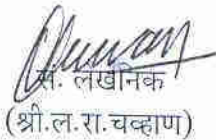 स. लेखनिक
(श्री.ल.रा.चव्हाण)